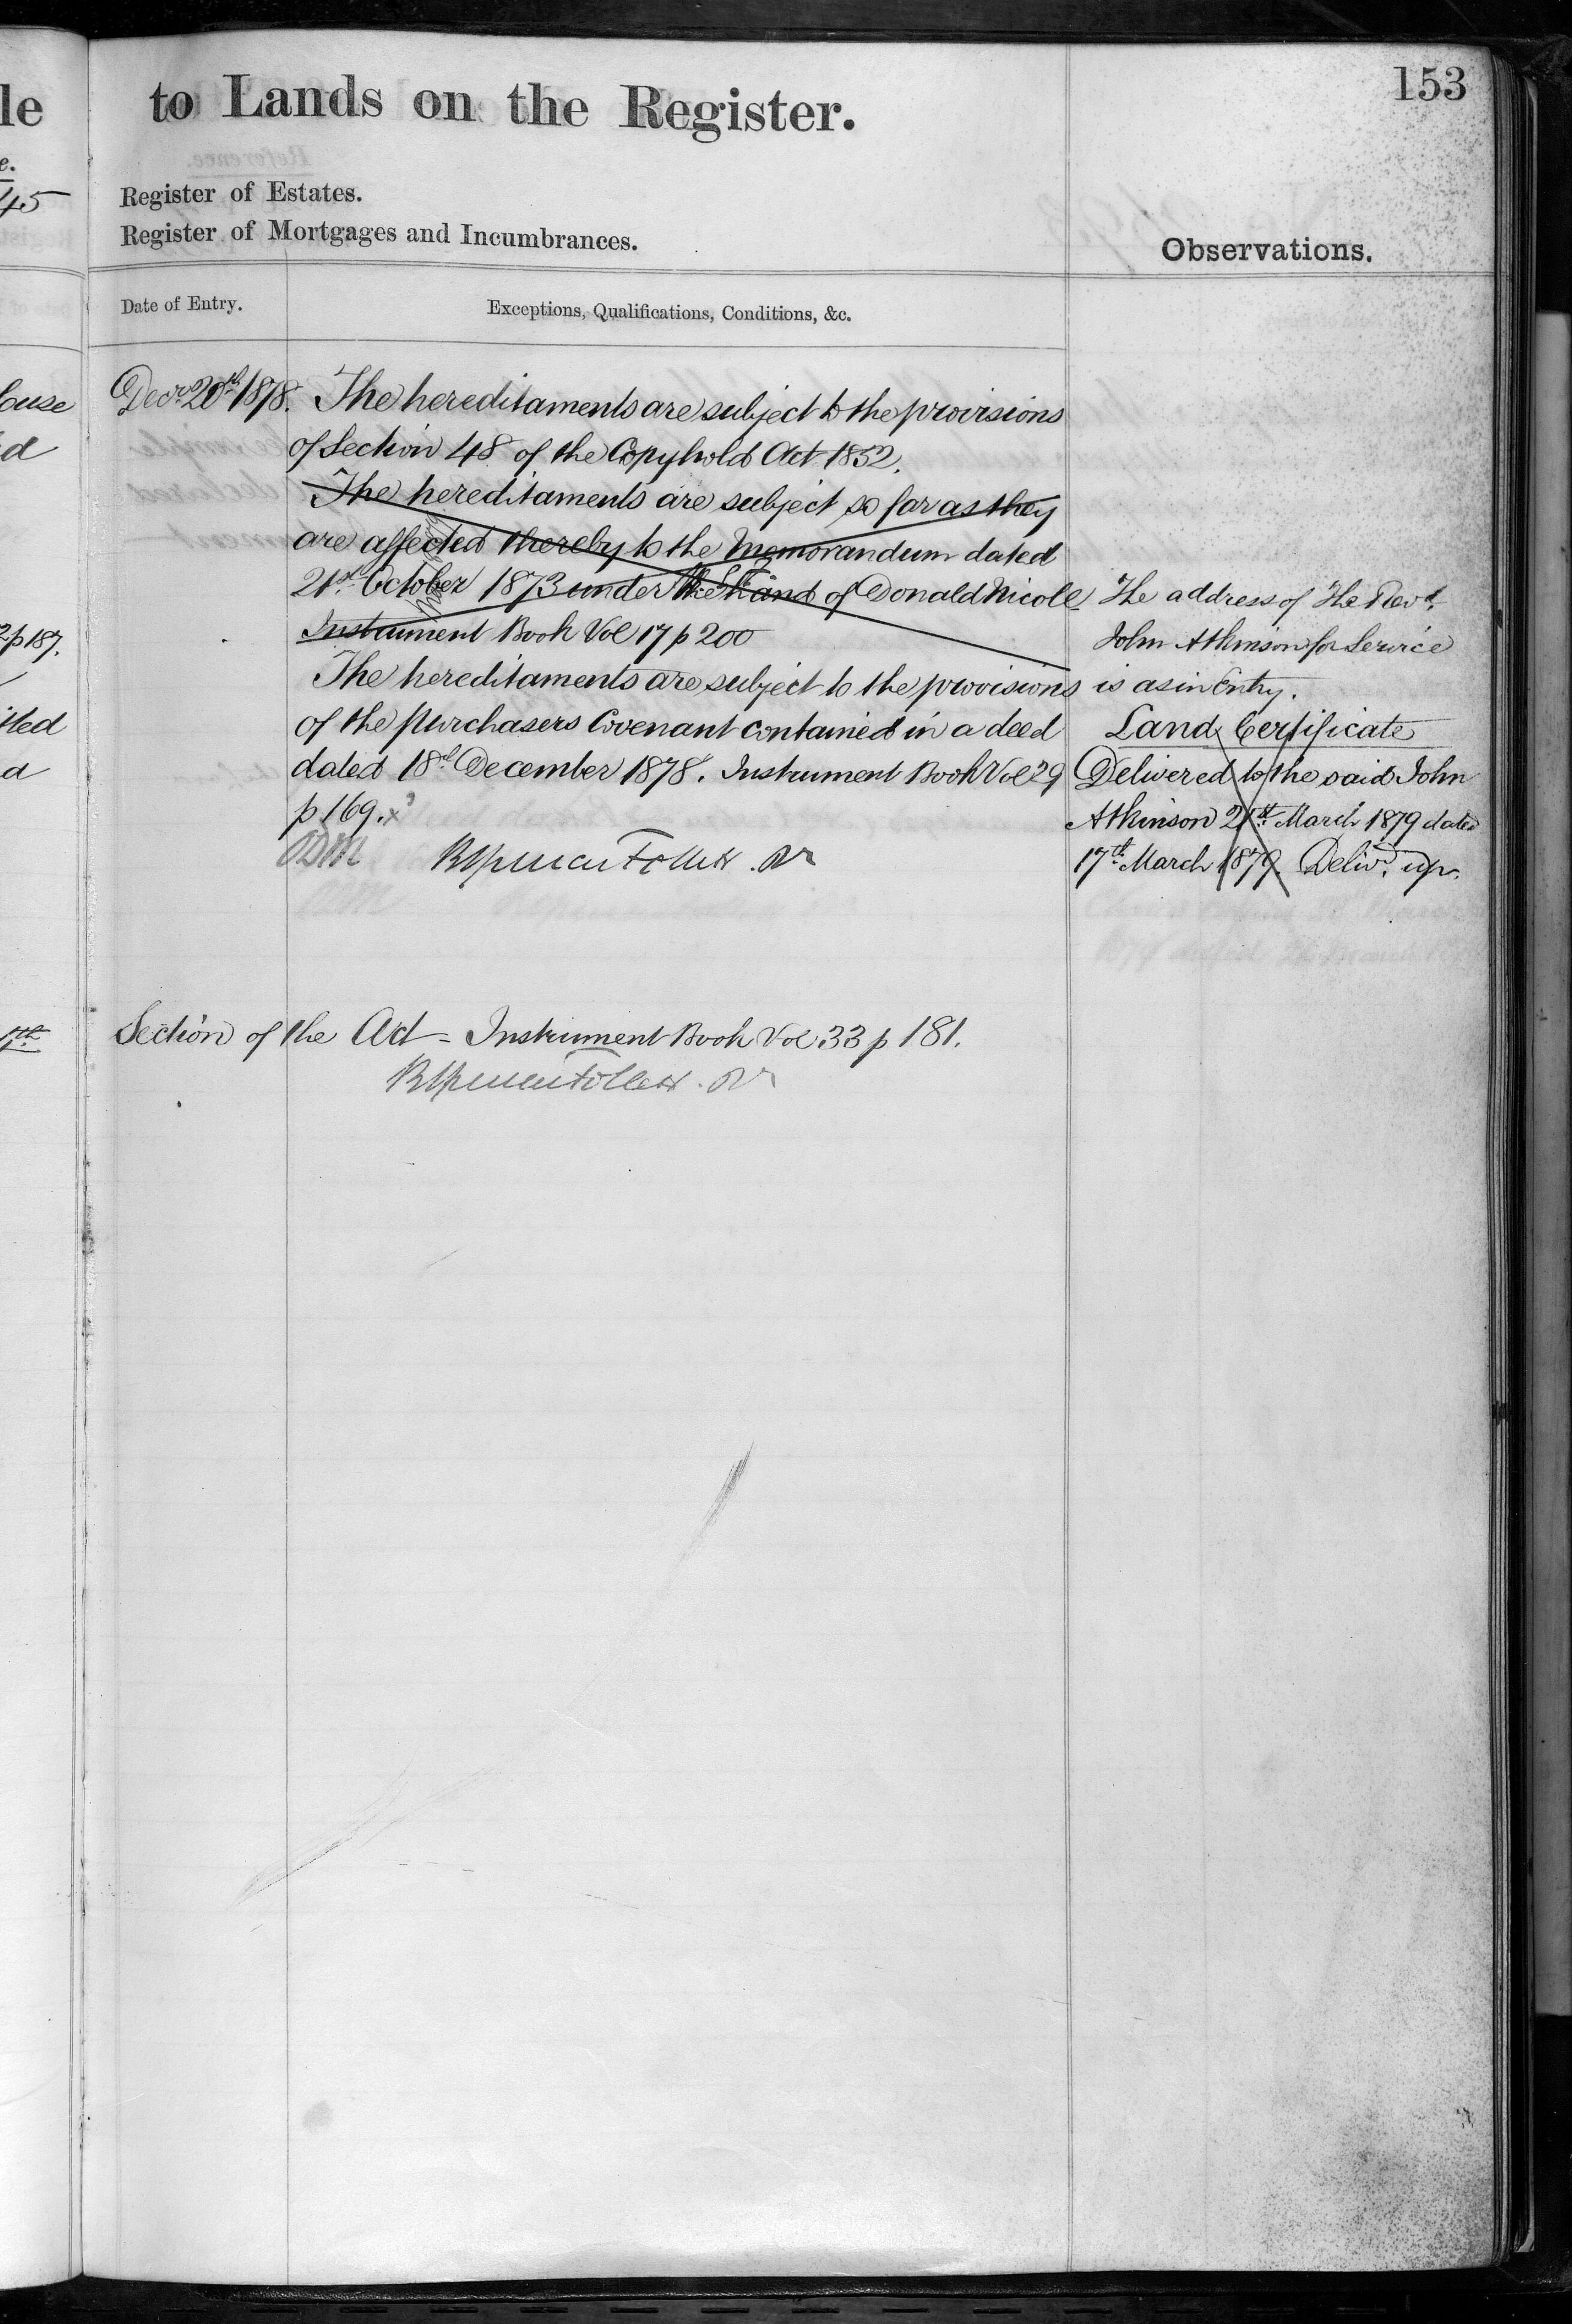 le
to Lands on the Register.
153
e.
45
Register of Estates.
Register of Mortgages and Incumbrances.
Observations.
Date of Entry.
Exceptions, Qualifications, Conditions, &c.
Decr. 20th 1878.
The hereditaments are subject to the provisions
of Section 48 of the Copyhold Act 1852.
The hereditaments are subject so far as they
are affected thereby to the Memorandum dated
21st October 1873 under the hand of Donald Nicoll
Instrument Book Vol 17 p 200
The hereditaments are subject to the provisions
of the purchasers Covenant contained in a deed
dated 18th December 1878. Instrument Book Vol 29
p 169.
The address of The Revd.
John Atkinson for Service
is as in Entry.
Land Certificate
Delivered to the said John
Atkinson 21st March 1879 dated
17th March 1879. Delivd. up.
Section of the Act - Instrument Book Vol 33 p 181.
p 187.
d
d